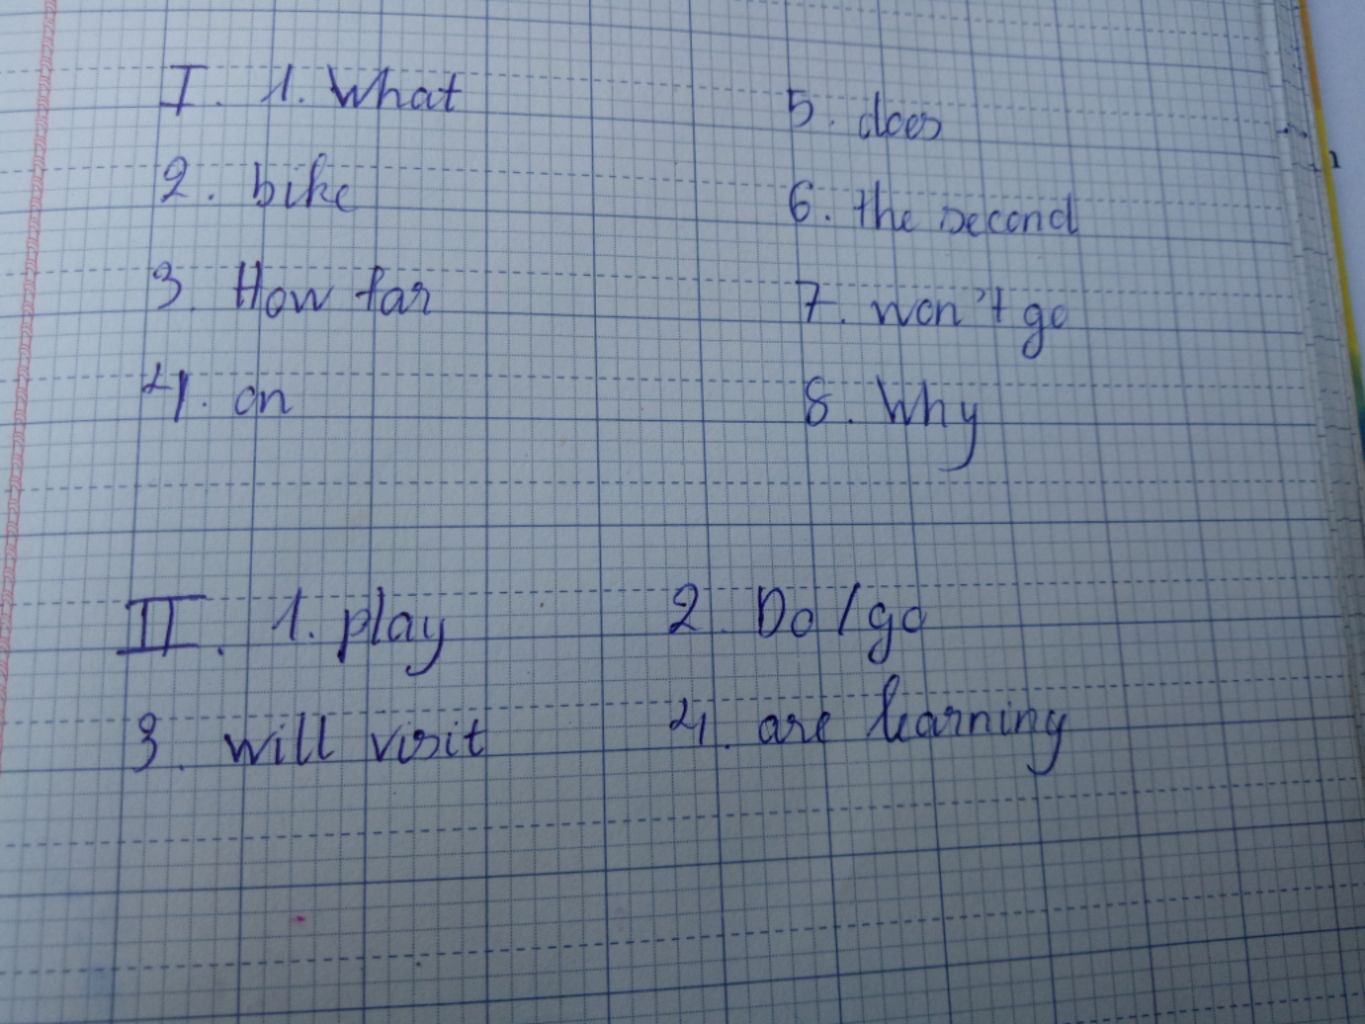 I. 1. What
2. bike
3. How far
4. on
5. does
6. the second
7. won't go
8. Why
II. 1. play
2. Do / go
3. will visit
4. are learning